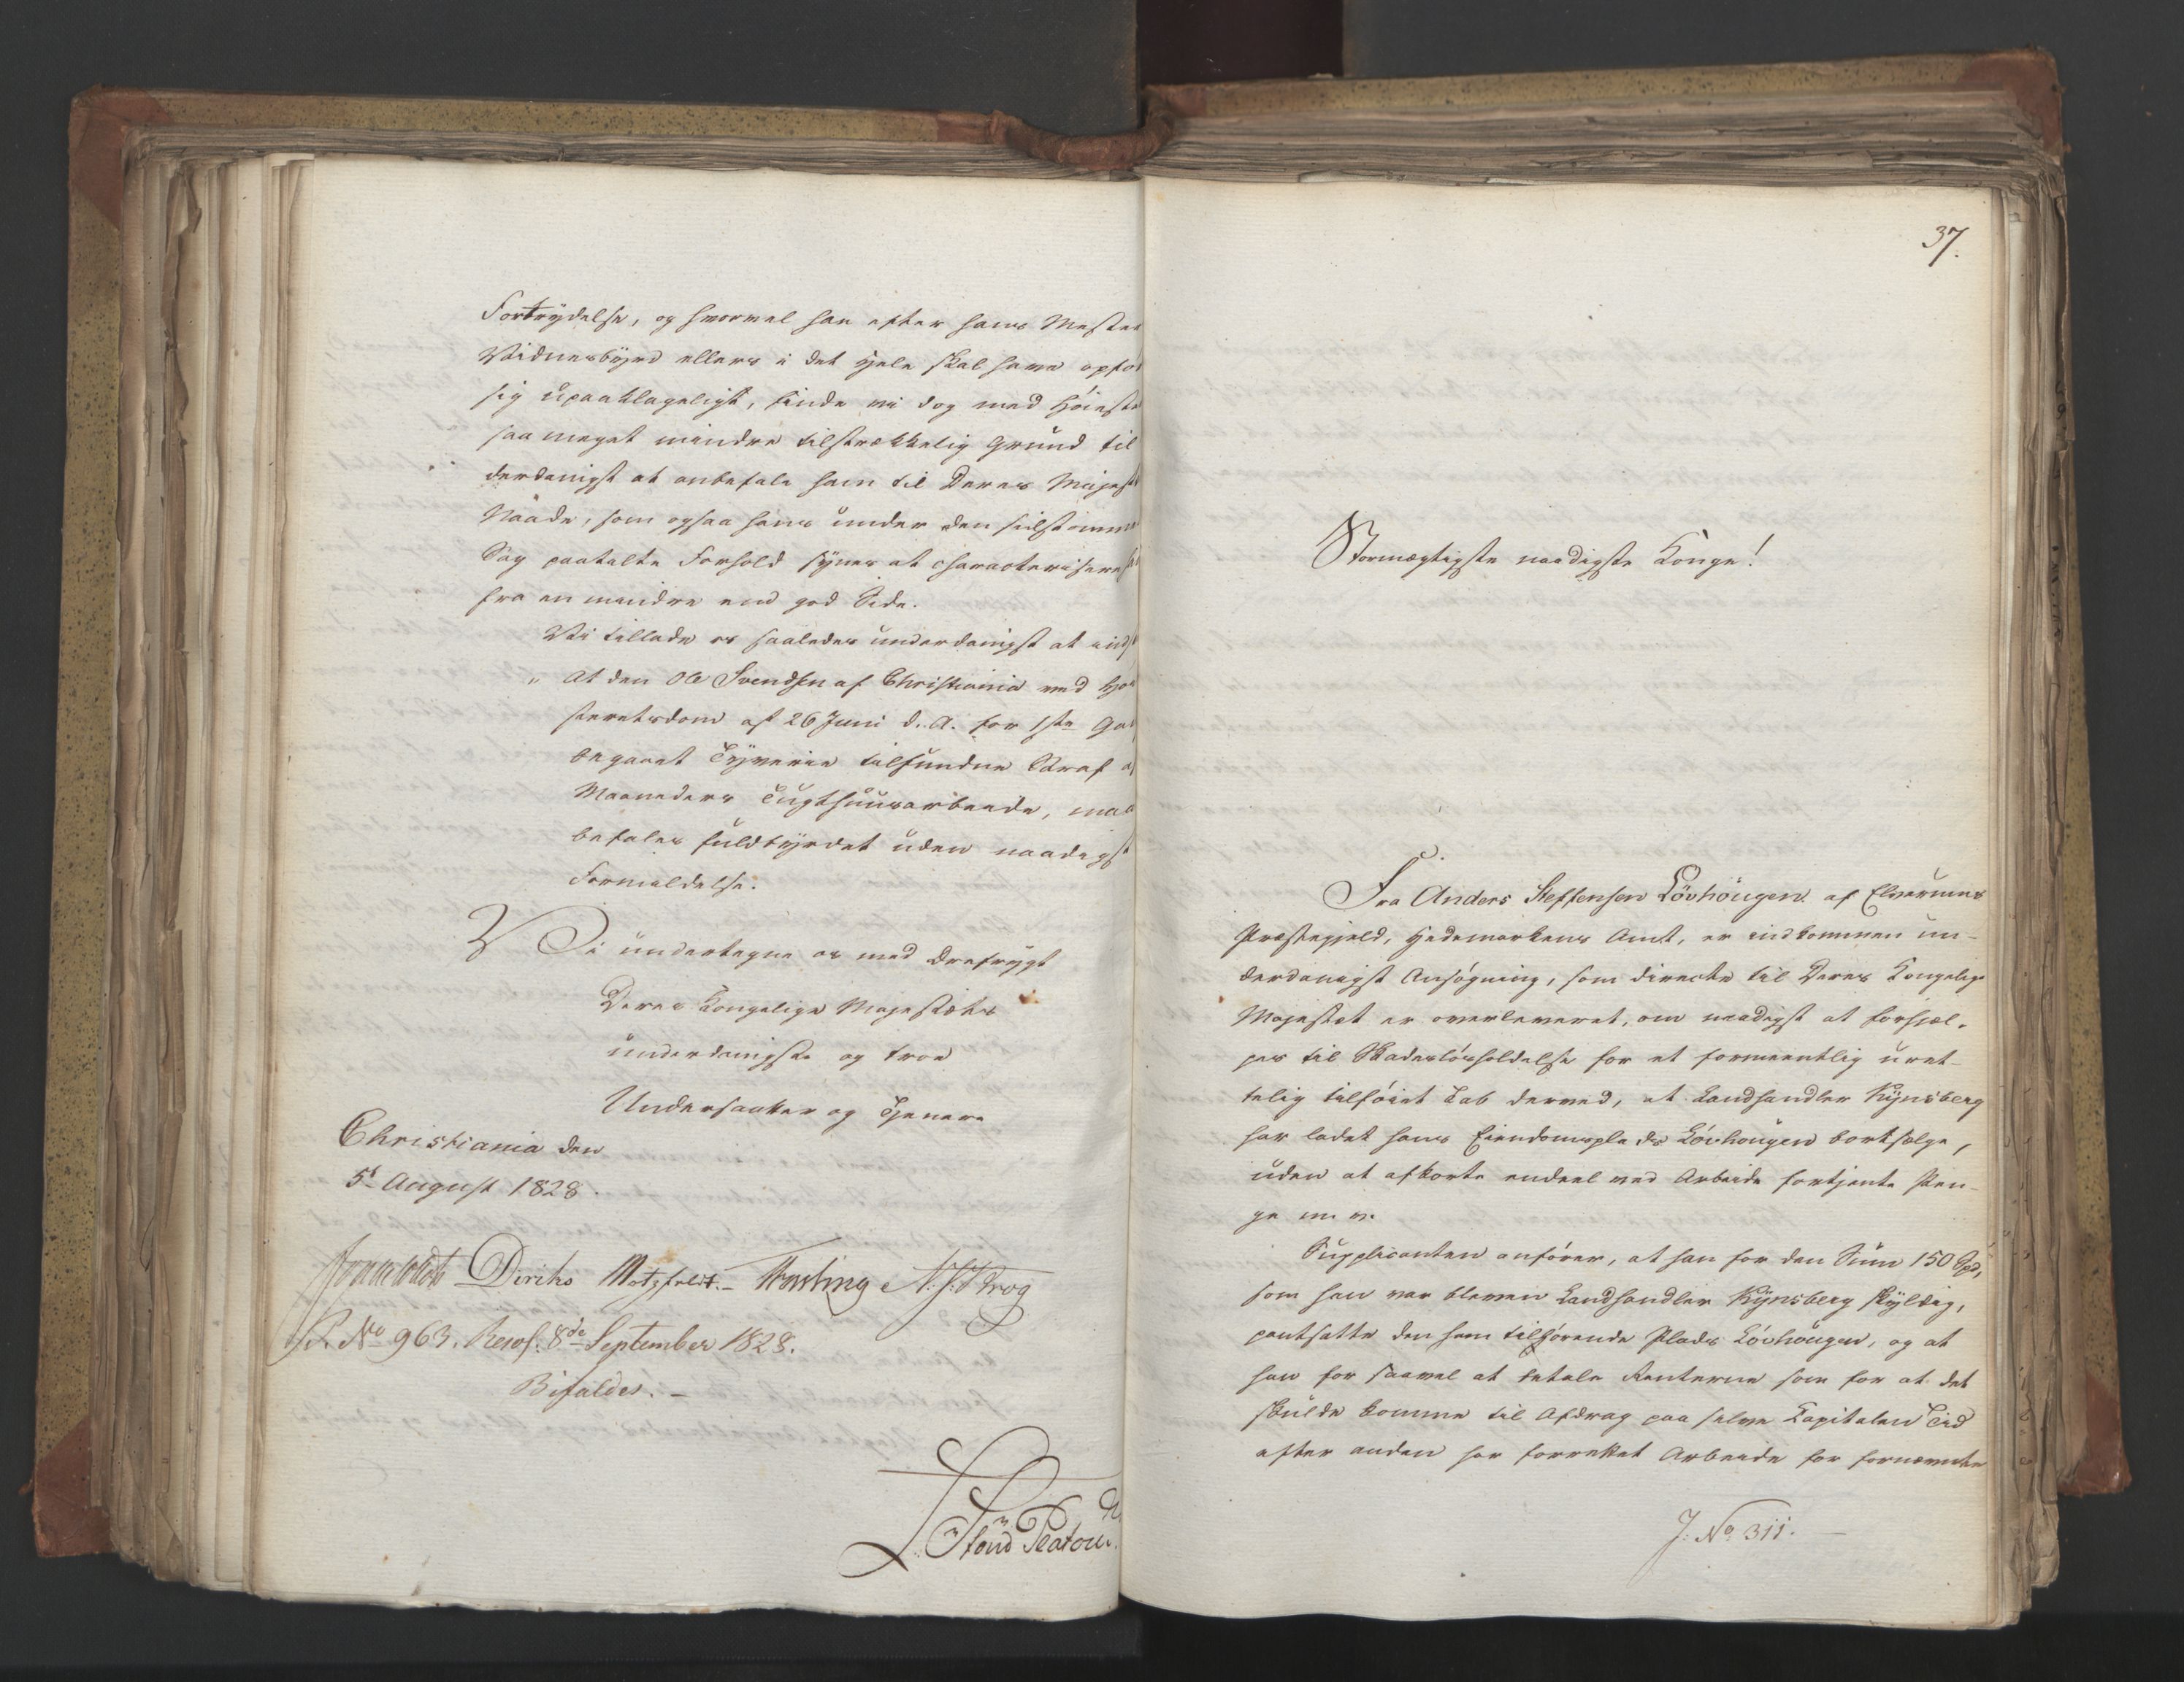 Fortrydelse, og hvorvel han efter hans Mester
Vidnesbyrd ellers i det Hele skal have opfø
sig upaaklageligt, finde vi dog med Høieste
saa meget mindre tilstrækkelig Grund til
derdanigst at anbefale ham til Deres Majest
Naade, som ogsaa hans under den sidst omm
Sag paatalte Forhold synes at characterisere
fra en mindre end god Side.
Vi tillade os saaledes underdanigst at inds
" At den Ole Svendsen af Christiania ved Høi
steretsdom af 26 Juni d. A. for 1ste Ga
begaaet Tyverie tilfundne Straf a
Maaneders Tugthuusarbeide, maa
befales fuldbyrdet uden naadigst
Formildelse.
Vi undertegne os med Ærefrygt
Deres Kongelige Majestæts
underdanigste og troe
Undersaatter og Tjenere
Christiania den
5t August 1828.
Diriks Motzfeldt. - N. J. Krog
S.R. No 963. Resol: 8de September 1828.
Bifaldes. -
37.
Stormægtigste naadigste Konge!
Fra Anders Steffensen Løvhougen af Elverums
Præstegjeld, Hedemarkens Amt, er indkommen un-
derdanigst Ansøgning, som directe til Deres Kongelige
Majestæt er overleveret, om naadigst at forhjæl-
pes til Skadesløsholdelse for et formeentlig uret-
telig tilføiet Tab derved, at Landhandler Kynsberg
har ladet hans Eiendomsplads Løvhougen bortsælge,
uden at afkorte endeel ved Arbeide fortjente Pen-
ge m. v.
Supplicanten anfører, at han for den Sum 150 Spd,
som han var bleven Landhandler Kynsberg skyldig,
pantsatte den ham tilhørende Plads Løvhougen, og at
han for saavel at betale Renterne som for at det
skulde komme til Afdrag paa selve Kapitalen Tid
efter anden har forrettet Arbeide for fornævnte
J. No 311. -